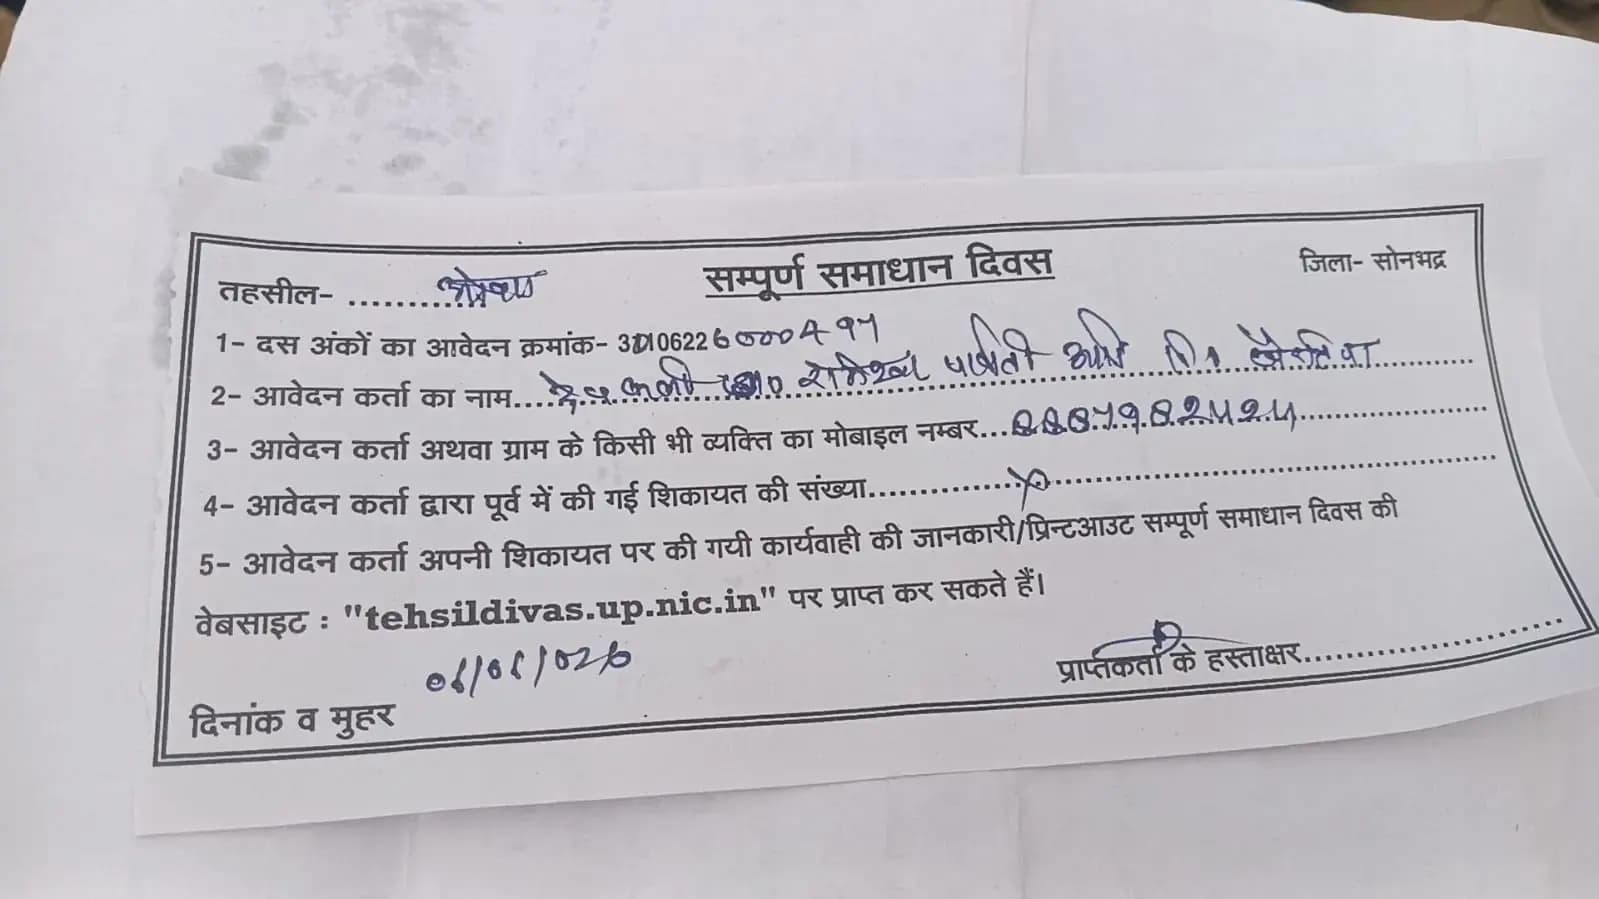 सम्पूर्ण समाधान दिवस
तहसील- ओबरा
जिला- सोनभद्र
1- दस अंकों का आवेदन क्रमांक- 30106226000497
2- आवेदन कर्ता का नाम... देवकली रामेश्वर पार्वती आदि नि०
3- आवेदन कर्ता अथवा ग्राम के किसी भी व्यक्ति का मोबाइल नम्बर...
4- आवेदन कर्ता द्वारा पूर्व में की गई शिकायत की संख्या...
5- आवेदन कर्ता अपनी शिकायत पर की गयी कार्यवाही की जानकारी/प्रिन्टआउट सम्पूर्ण समाधान दिवस की
वेबसाइट : "tehsildivas.up.nic.in" पर प्राप्त कर सकते हैं।
प्राप्तकर्ता के हस्ताक्षर...
दिनांक व मुहर